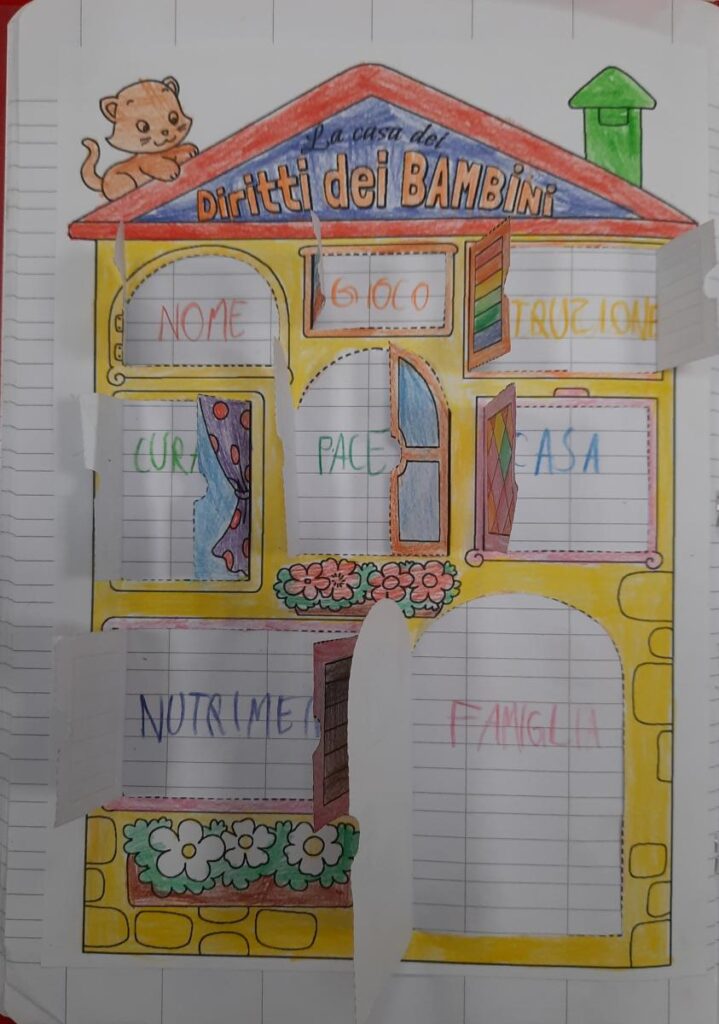 La casa dei
Diritti dei BAMBINI
NOME
GIOCO
TRUZIONE
CURA
PACE
CASA
NUTRIME
FAMIGLIA